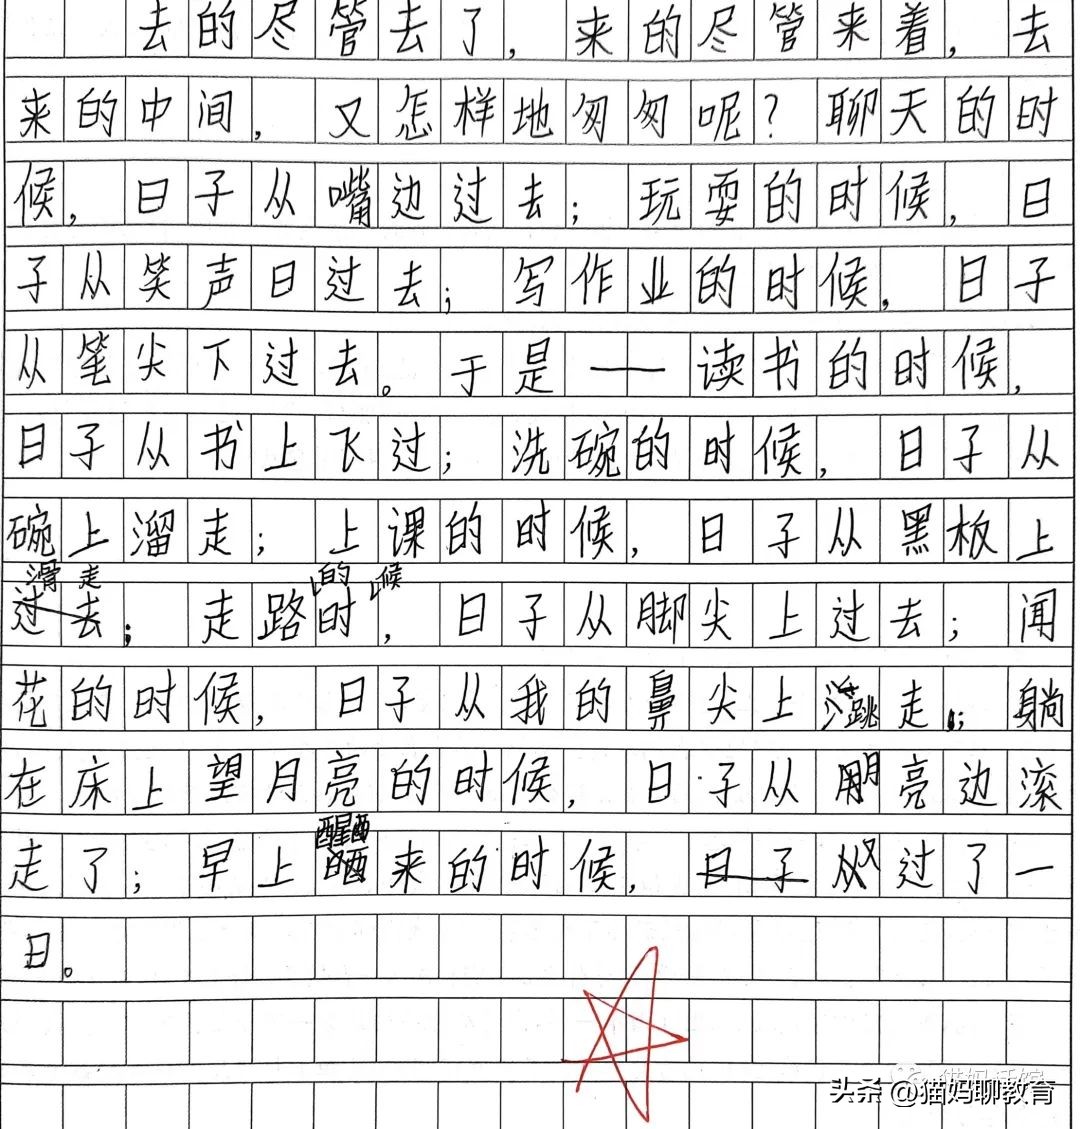 去的尽管去了，来的尽管来着，去
来的中间，又怎样地匆匆呢？聊天的时
候，日子从嘴边过去；玩耍的时候，日
子从笑声日过去；写作业的时候，日子
从笔尖下过去。于是——读书的时候，
日子从书上飞过；洗碗的时候，日子从
碗上溜走；上课的时候，日子从黑板上
滑走 的 候
过去；走路时，日子从脚尖上过去；闻
花的时候，日子从我的鼻尖上跳走；躺
在床上望月亮的时候，日子从月亮边滚
走了；早上醒来的时候，日子又过了一
日。
头条 @猫妈聊教育